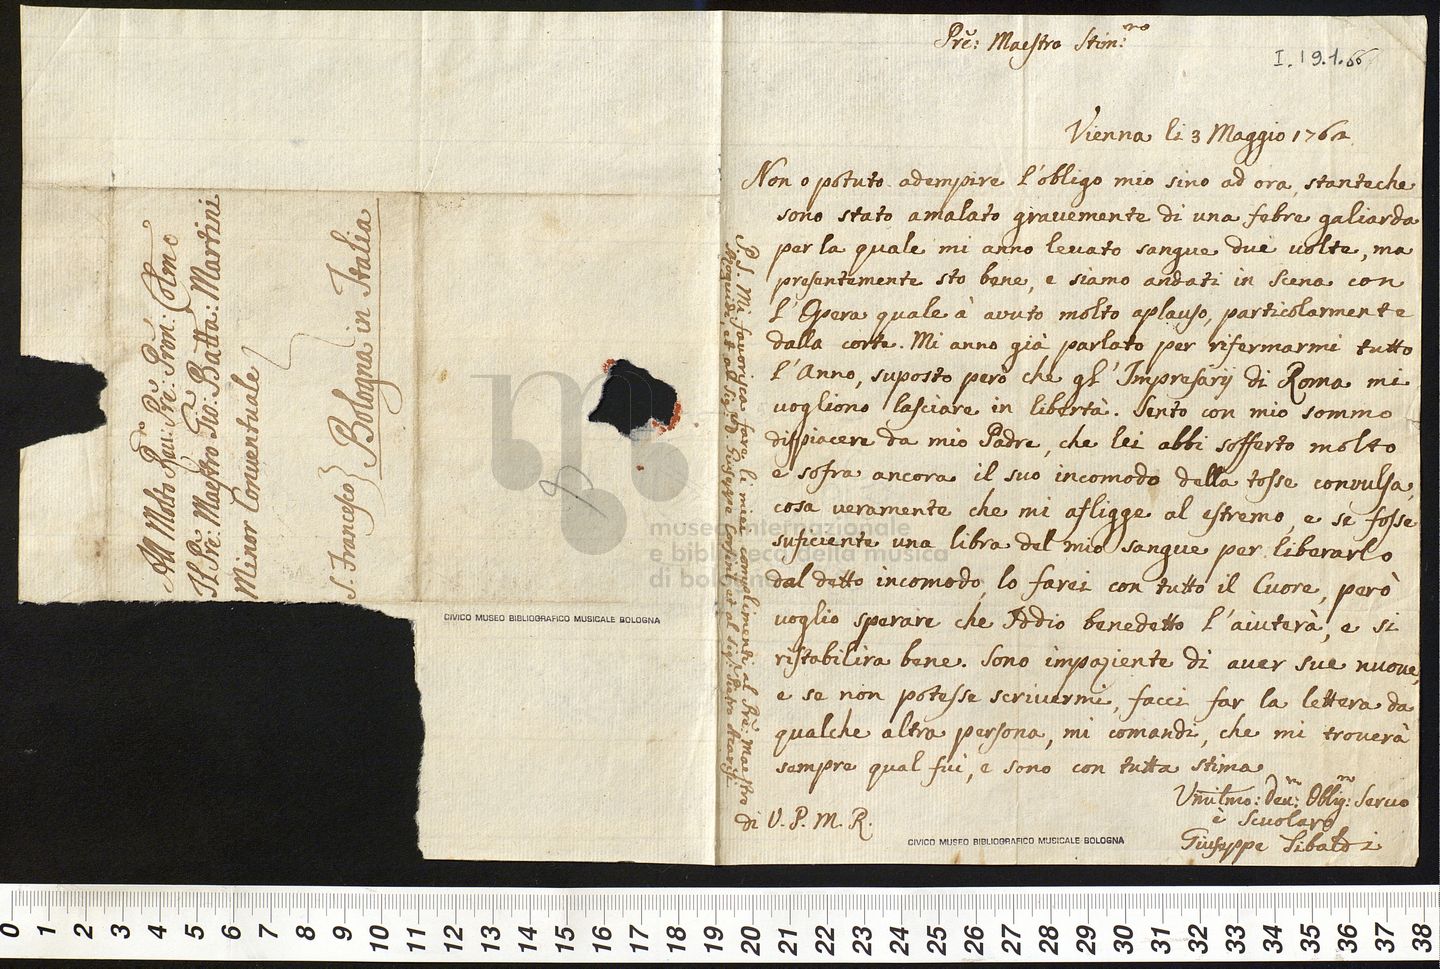 Prẽ: Maestro Stim:mo
I.19.1.66
Vienna li 3 Maggio 1762
Non o potuto adempire l'obligo mio sino ad ora, stanteche
sono stato amalato gravemente di una febre galiarda
per la quale mi anno levato sangue due volte, ma
presentemente sto bene, e siamo andati in Scena con
l'Opera quale à avuto molto aplauso, particolarmente
dalla corte. Mi anno già parlato per rifermarmi tutto
l'Anno, suposto però che gl'Impresarij di Roma mi
vogliono lasciare in libertà. Sento con mio sommo
dispiacere da mio Padre, che lei abbi sofferto molto
e sofra ancora il suo incomodo della tosse convulsa,
cosa veramente che mi afligge al estremo, e se fosse
suficiente una libra del mio sangue per liberarlo
dal detto incomodo, lo farei con tutto il Cuore, però
voglio sperare che Iddio benedetto l'aiuterà, e si
ristabilira bene. Sono impaziente di aver sue nuove,
e se non potesse scrivermi, facci far la lettera da
qualche altra persona, mi comandi, che mi troverà
sempre qual fui, e sono con tutta stima
di V. P. M. R.
Umilmo: Deu:mo Oblig:mo Servo
e Scuolaro
Giuseppe Tibaldi
P.S. Mi favorisca fare li miei complimenti al Prẽ: Maestro
et al Sig: D. Giuseppe et al Sig:
All Molto Reu: Prẽ: Prõn: Colmo
Il Prẽ: Maestro Gio: Batta: Martini
Minor Conventuale
S. Francesco} Bologna in Italia
CIVICO MUSEO BIBLIOGRAFICO MUSICALE BOLOGNA
CIVICO MUSEO BIBLIOGRAFICO MUSICALE BOLOGNA
museo internazionale
e biblioteca della musica
di bologna
0 1 2 3 4 5 6 7 8 9 10 11 12 13 14 15 16 17 18 19 20 21 22 23 24 25 26 27 28 29 30 31 32 33 34 35 36 37 38